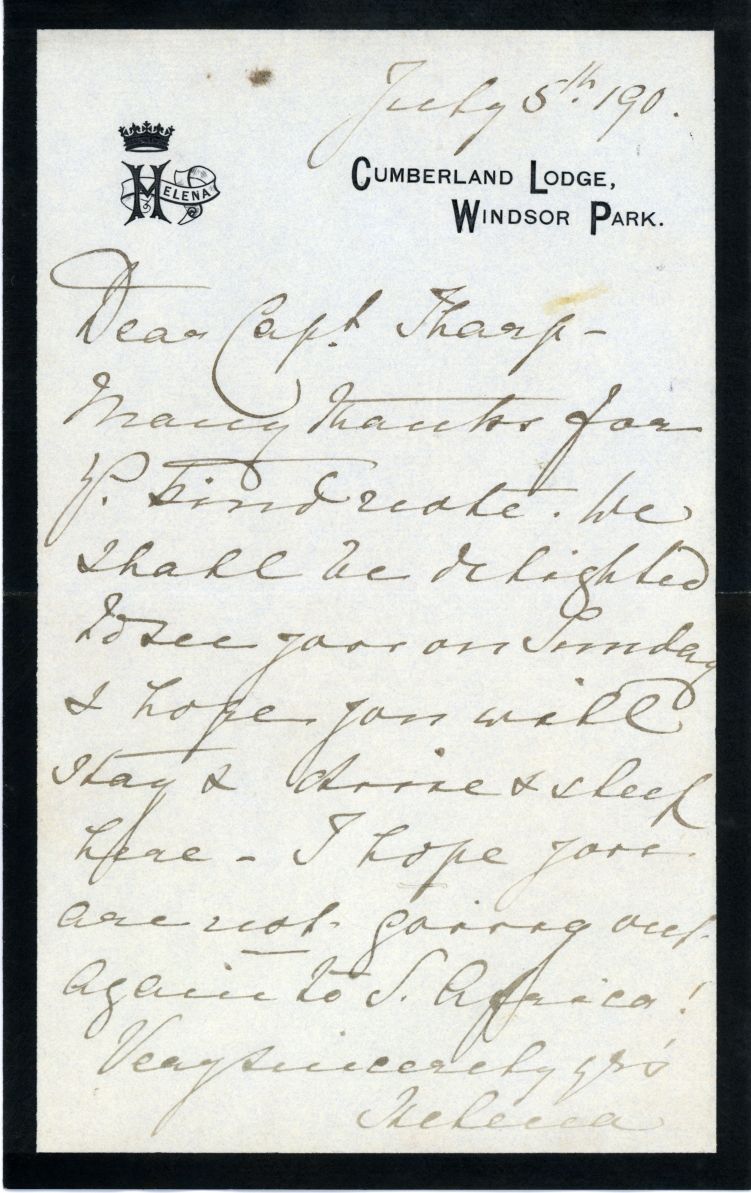 July 5th. 190.
HELENA
CUMBERLAND LODGE,
WINDSOR PARK.
Dear Capt. Tharp -
Many thanks for
yr. kind note. We
shall be delighted
to see you on Sunday
& hope you will
stay & dine & sleep
here - I hope you
are not going out
again to S. Africa!
Very sincerely yrs
Helena